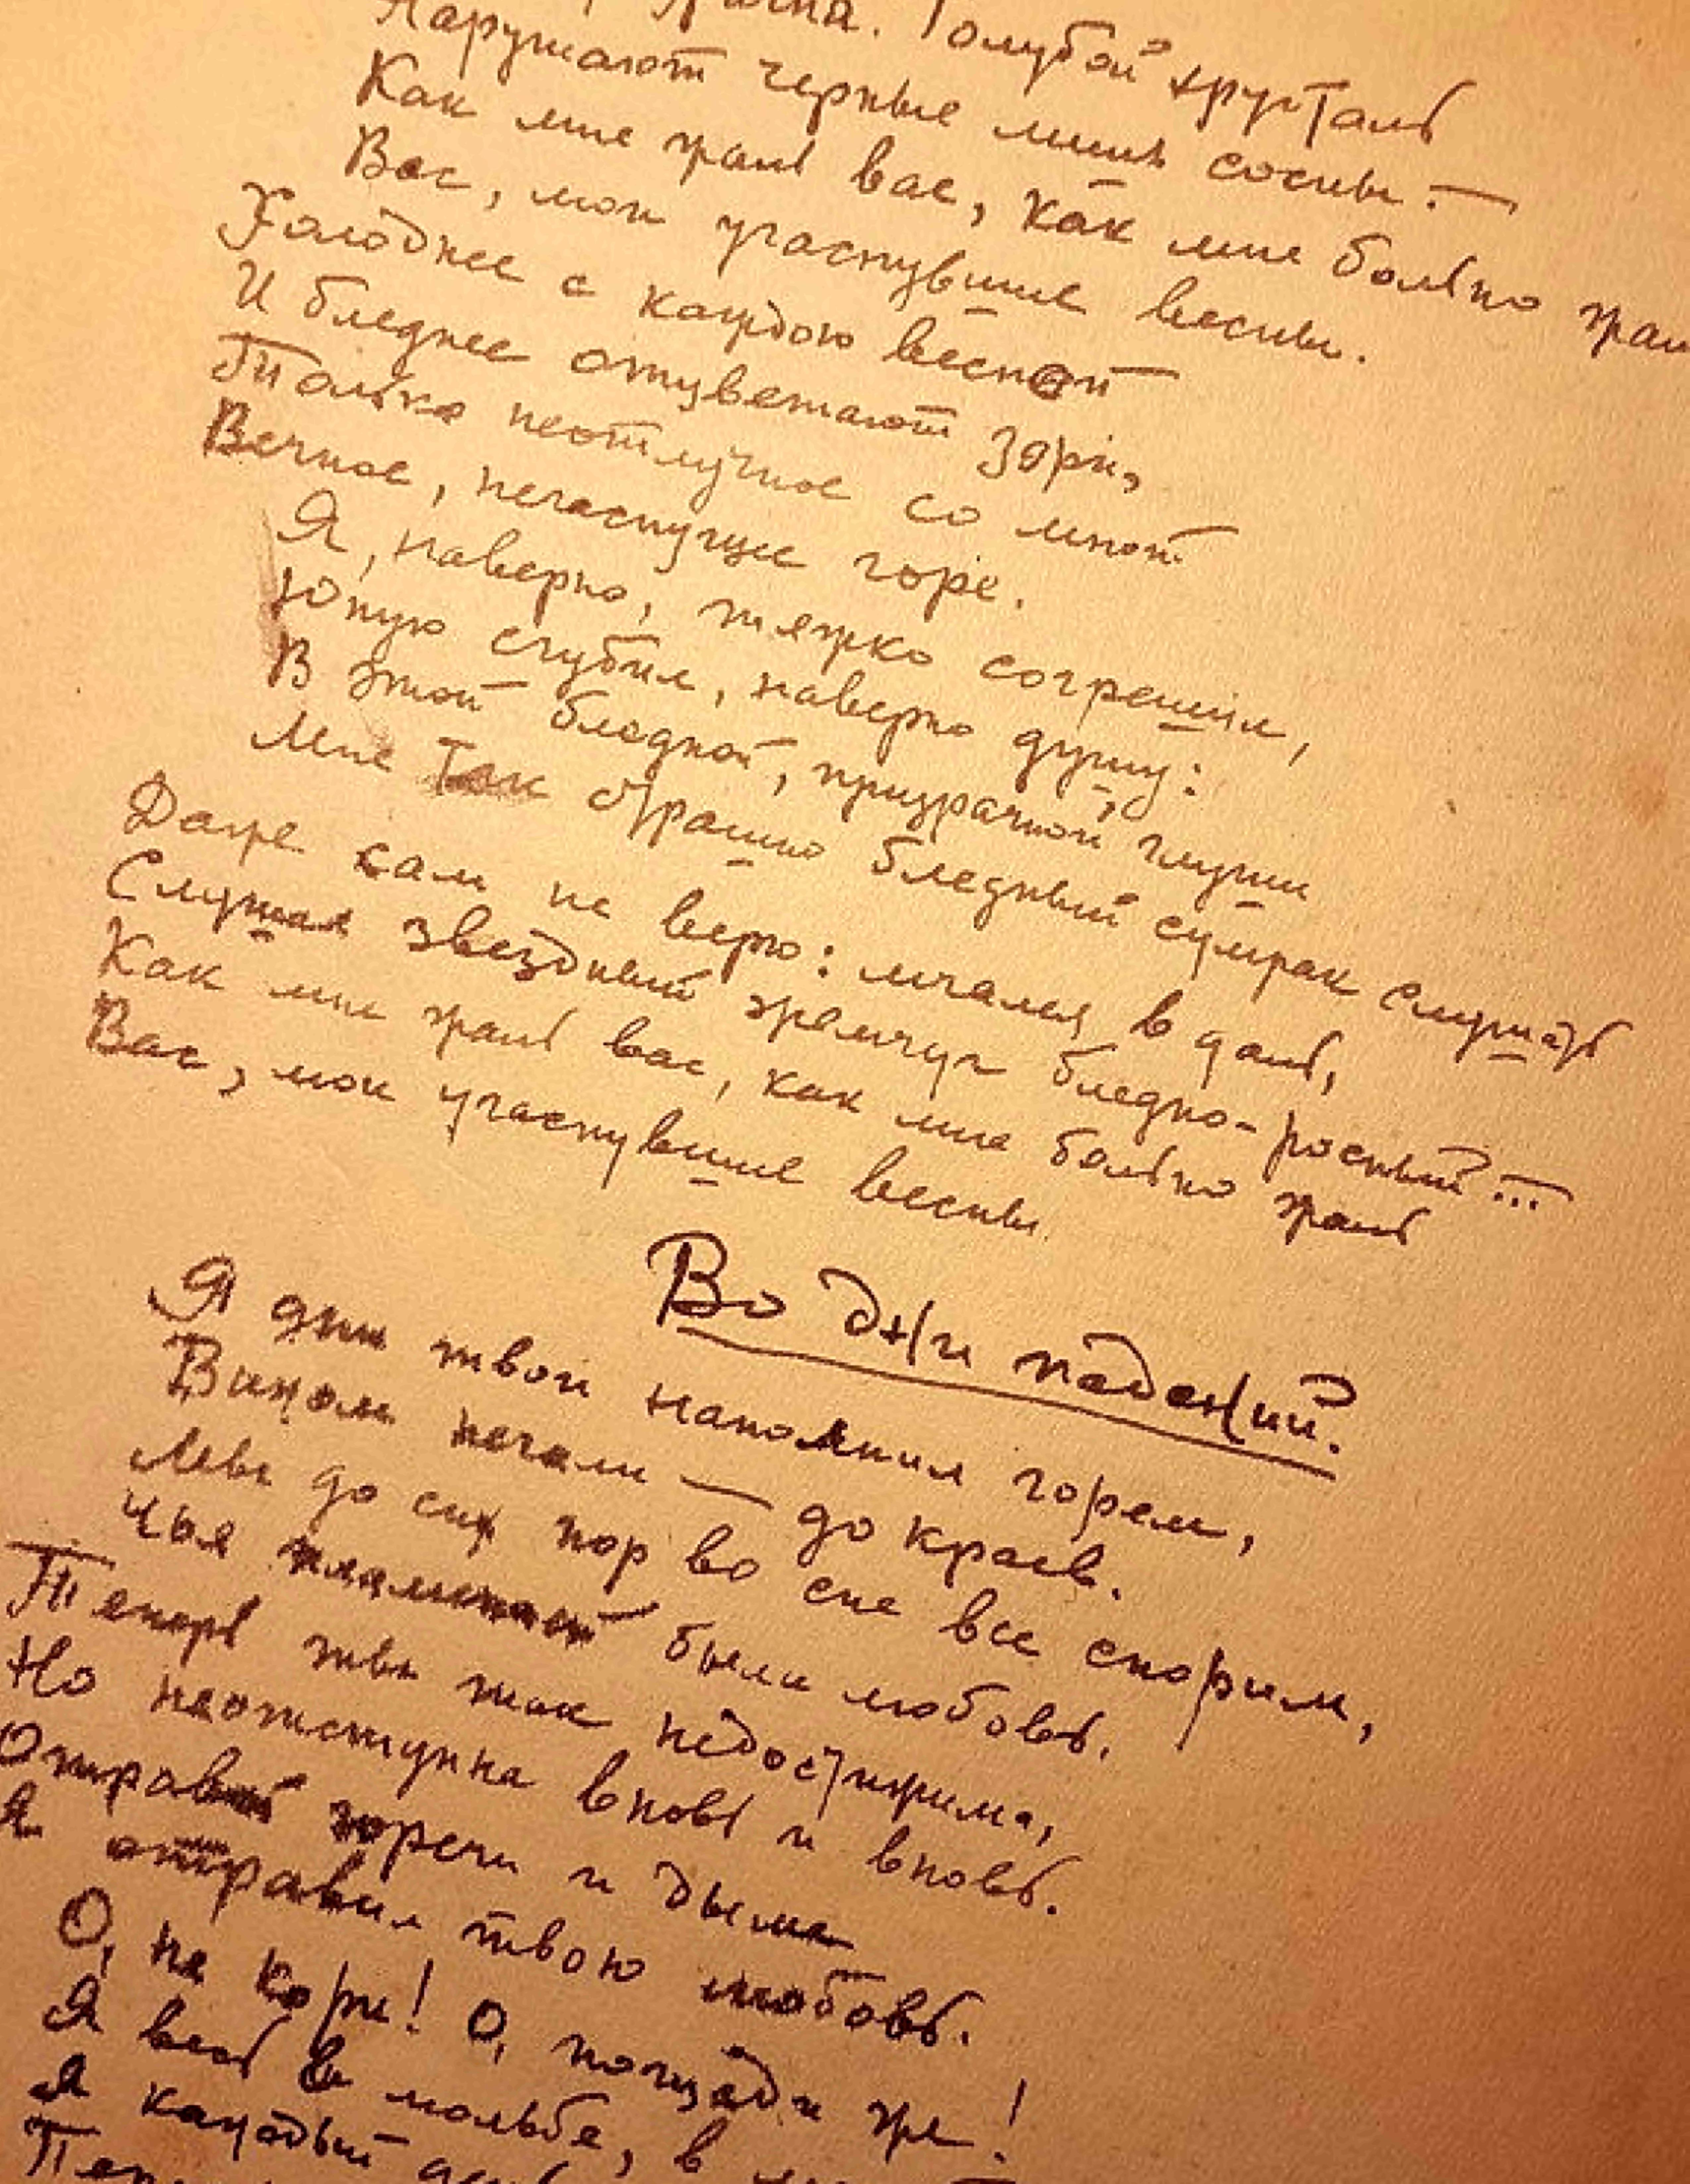 Голубой хрусталь
Нарушают черные лишь сосны. —
Как мне жаль вас, как мне больно жаль
Вас, мои угаснувшие весны.
Холоднее с каждою весной
И бледнее отцветают зори,
Только неотлучное со мной
Вечное, негаснущее горе.
Я, наверно, тяжко согрешил,
Юную сгубил, наверно душу:
В этой бледной, призрачной глуши
Мне так страшно бледный сумрак слушать
Даже сам не верю: мчался в даль,
Слушая звездный жемчуг бледно-росный...
Как мне жаль вас, как мне больно жаль
Вас, мои угаснувшие весны.
Во дни падений.
Я дни твои наполнил горем,
Вином печали — до краев.
Мы до сих пор во сне все спорим,
Чья пламенней были любовь.
Теперь ты так недостижима,
Но неотступна вновь и вновь.
Отравой горечи и дыма
Я отравил твою любовь.
О, не кори! О, пощади же!
Я весь в мольбе, в
Я каждый